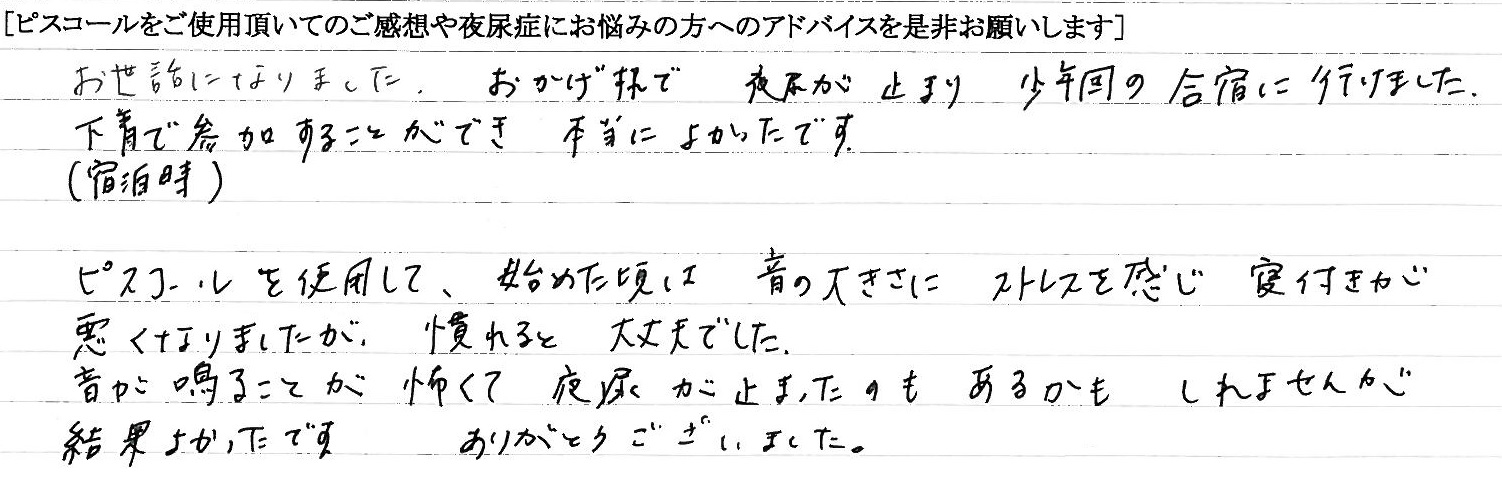 [ピスコールをご使用頂いてのご感想や夜尿症にお悩みの方へのアドバイスを是非お願いします]
お世話になりました. おかげ様で 夜尿が 止まり 少年団の 合宿に 行けました.
下着で 参加することができ 本当に よかったです.
(宿泊時)
ピスコールを使用して、始めた頃は 音の大きさに ストレスを感じ 寝付きが
悪くなりましたが, 慣れると 大丈夫でした.
音が 鳴ることが 怖くて 夜尿が 止まったのも あるかも しれませんが
結果よかったです ありがとうございました。